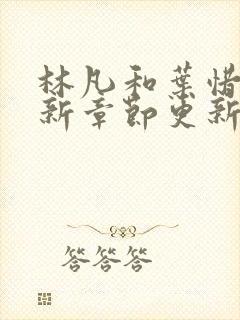 林凡和葉惜
新章節更新
答答答